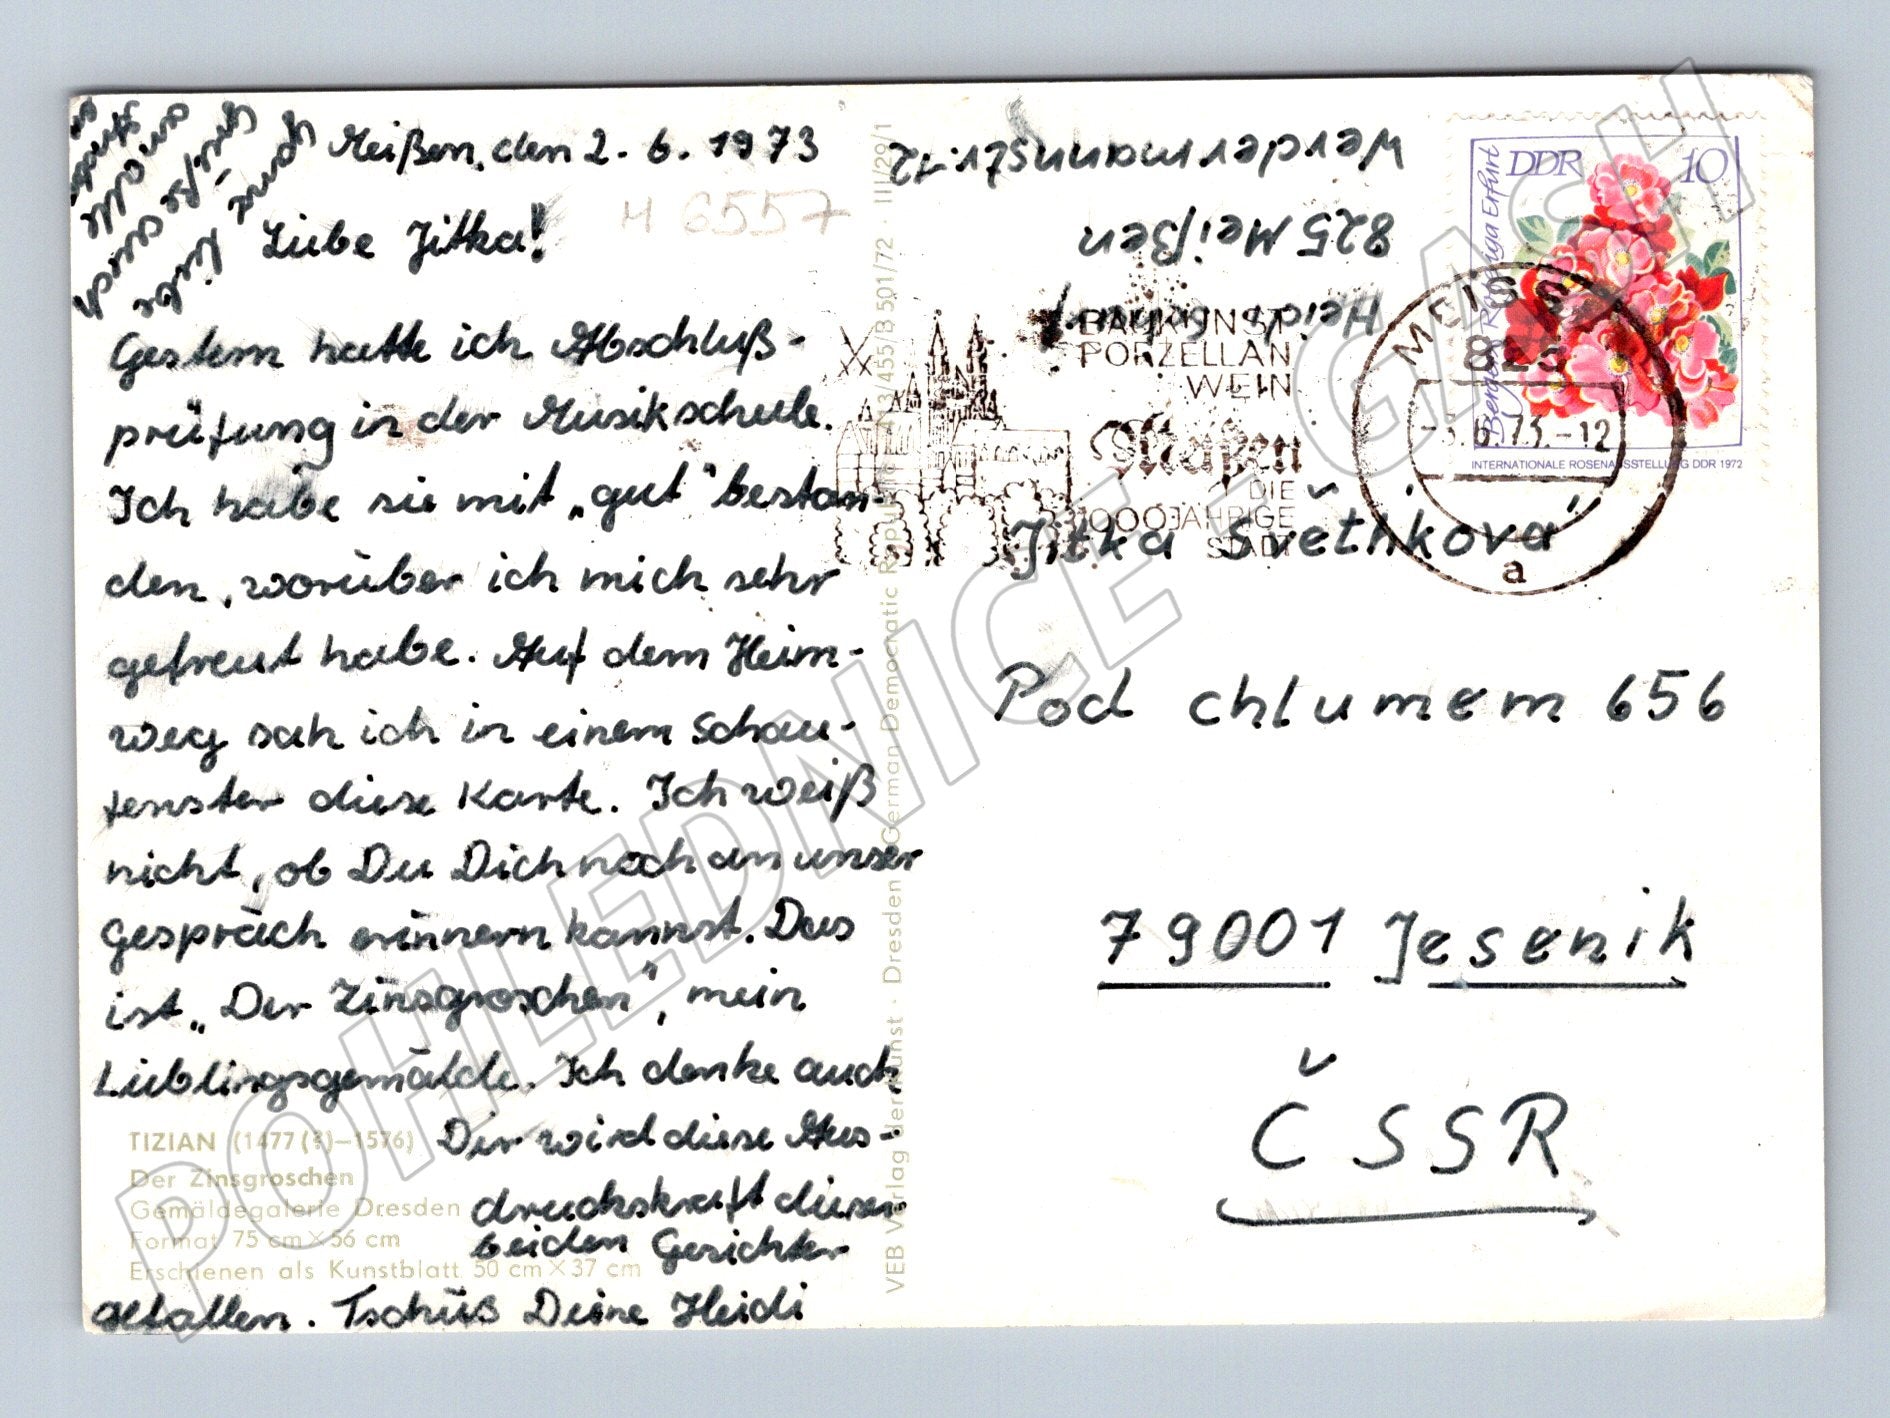 Meißen, den 2. 6. 1973
H 6557
Liebe Jitka!
Gestern hatte ich Abschluß-
prüfung in der Musikschule.
Ich habe sie mit „gut" bestan-
den, worüber ich mich sehr
gefreut habe. Auf dem Heim-
weg sah ich in einem Schau-
fenster diese Karte. Ich weiß
nicht, ob Du Dich noch an unser
Gespräch erinnern kannst. Das
ist „Der Zinsgroschen", mein
Lieblingsgemälde. Ich denke auch
Dir wird diese Aus-
druckskraft dieser
beiden Gesichter
gefallen. Tschüß Deine Heidi
TIZIAN (1477(?)–1576)
Der Zinsgroschen
Gemäldegalerie Dresden
Format 75 cm × 56 cm
Erschienen als Kunstblatt 50 cm × 37 cm
VEB Verlag der Kunst · Dresden · German Democratic Republic · A 3/455/B 501/72 · III/29/1
Werdermannstr. 12
825 Meißen
Heidi
BAUKUNST
PORZELLAN
WEIN
Meißen
DIE
1000JÄHRIGE
STADT
MEISSEN
825
-3.6.73.-12
a
DDR 10
Bengale Rosa Erfurt
INTERNATIONALE ROSENAUSSTELLUNG DDR 1972
Jitka
Pod chlumem 656
79001 Jesenik
ČSSR
POHLEDNICE - GASH